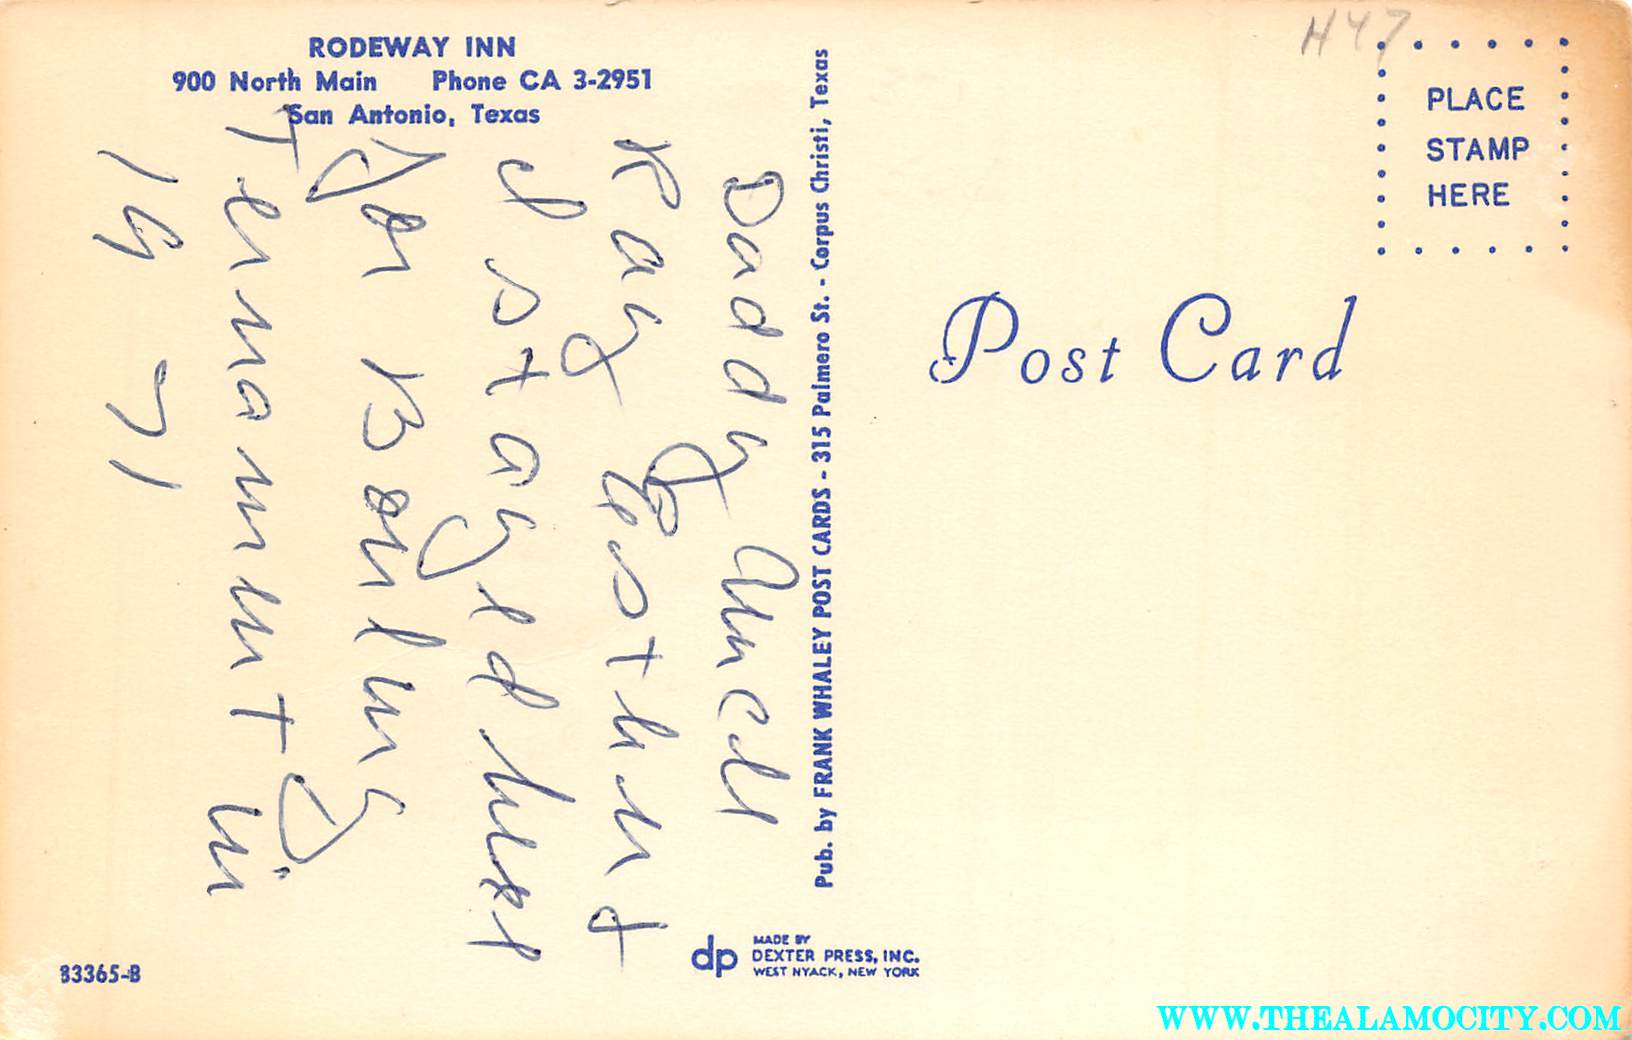 RODEWAY INN
900 North Main Phone CA 3-2951
San Antonio, Texas
Daddy Uncle
Ray Esther &
I stayed here
for Boyling
Ternament in
1971
Pub. by FRANK WHALEY POST CARDS - 315 Palmero St. - Corpus Christi, Texas
dp
MADE BY
DEXTER PRESS, INC.
WEST NYACK, NEW YORK
83365-B
H47
PLACE
STAMP
HERE
Post Card
WWW.THEALAMOCITY.COM